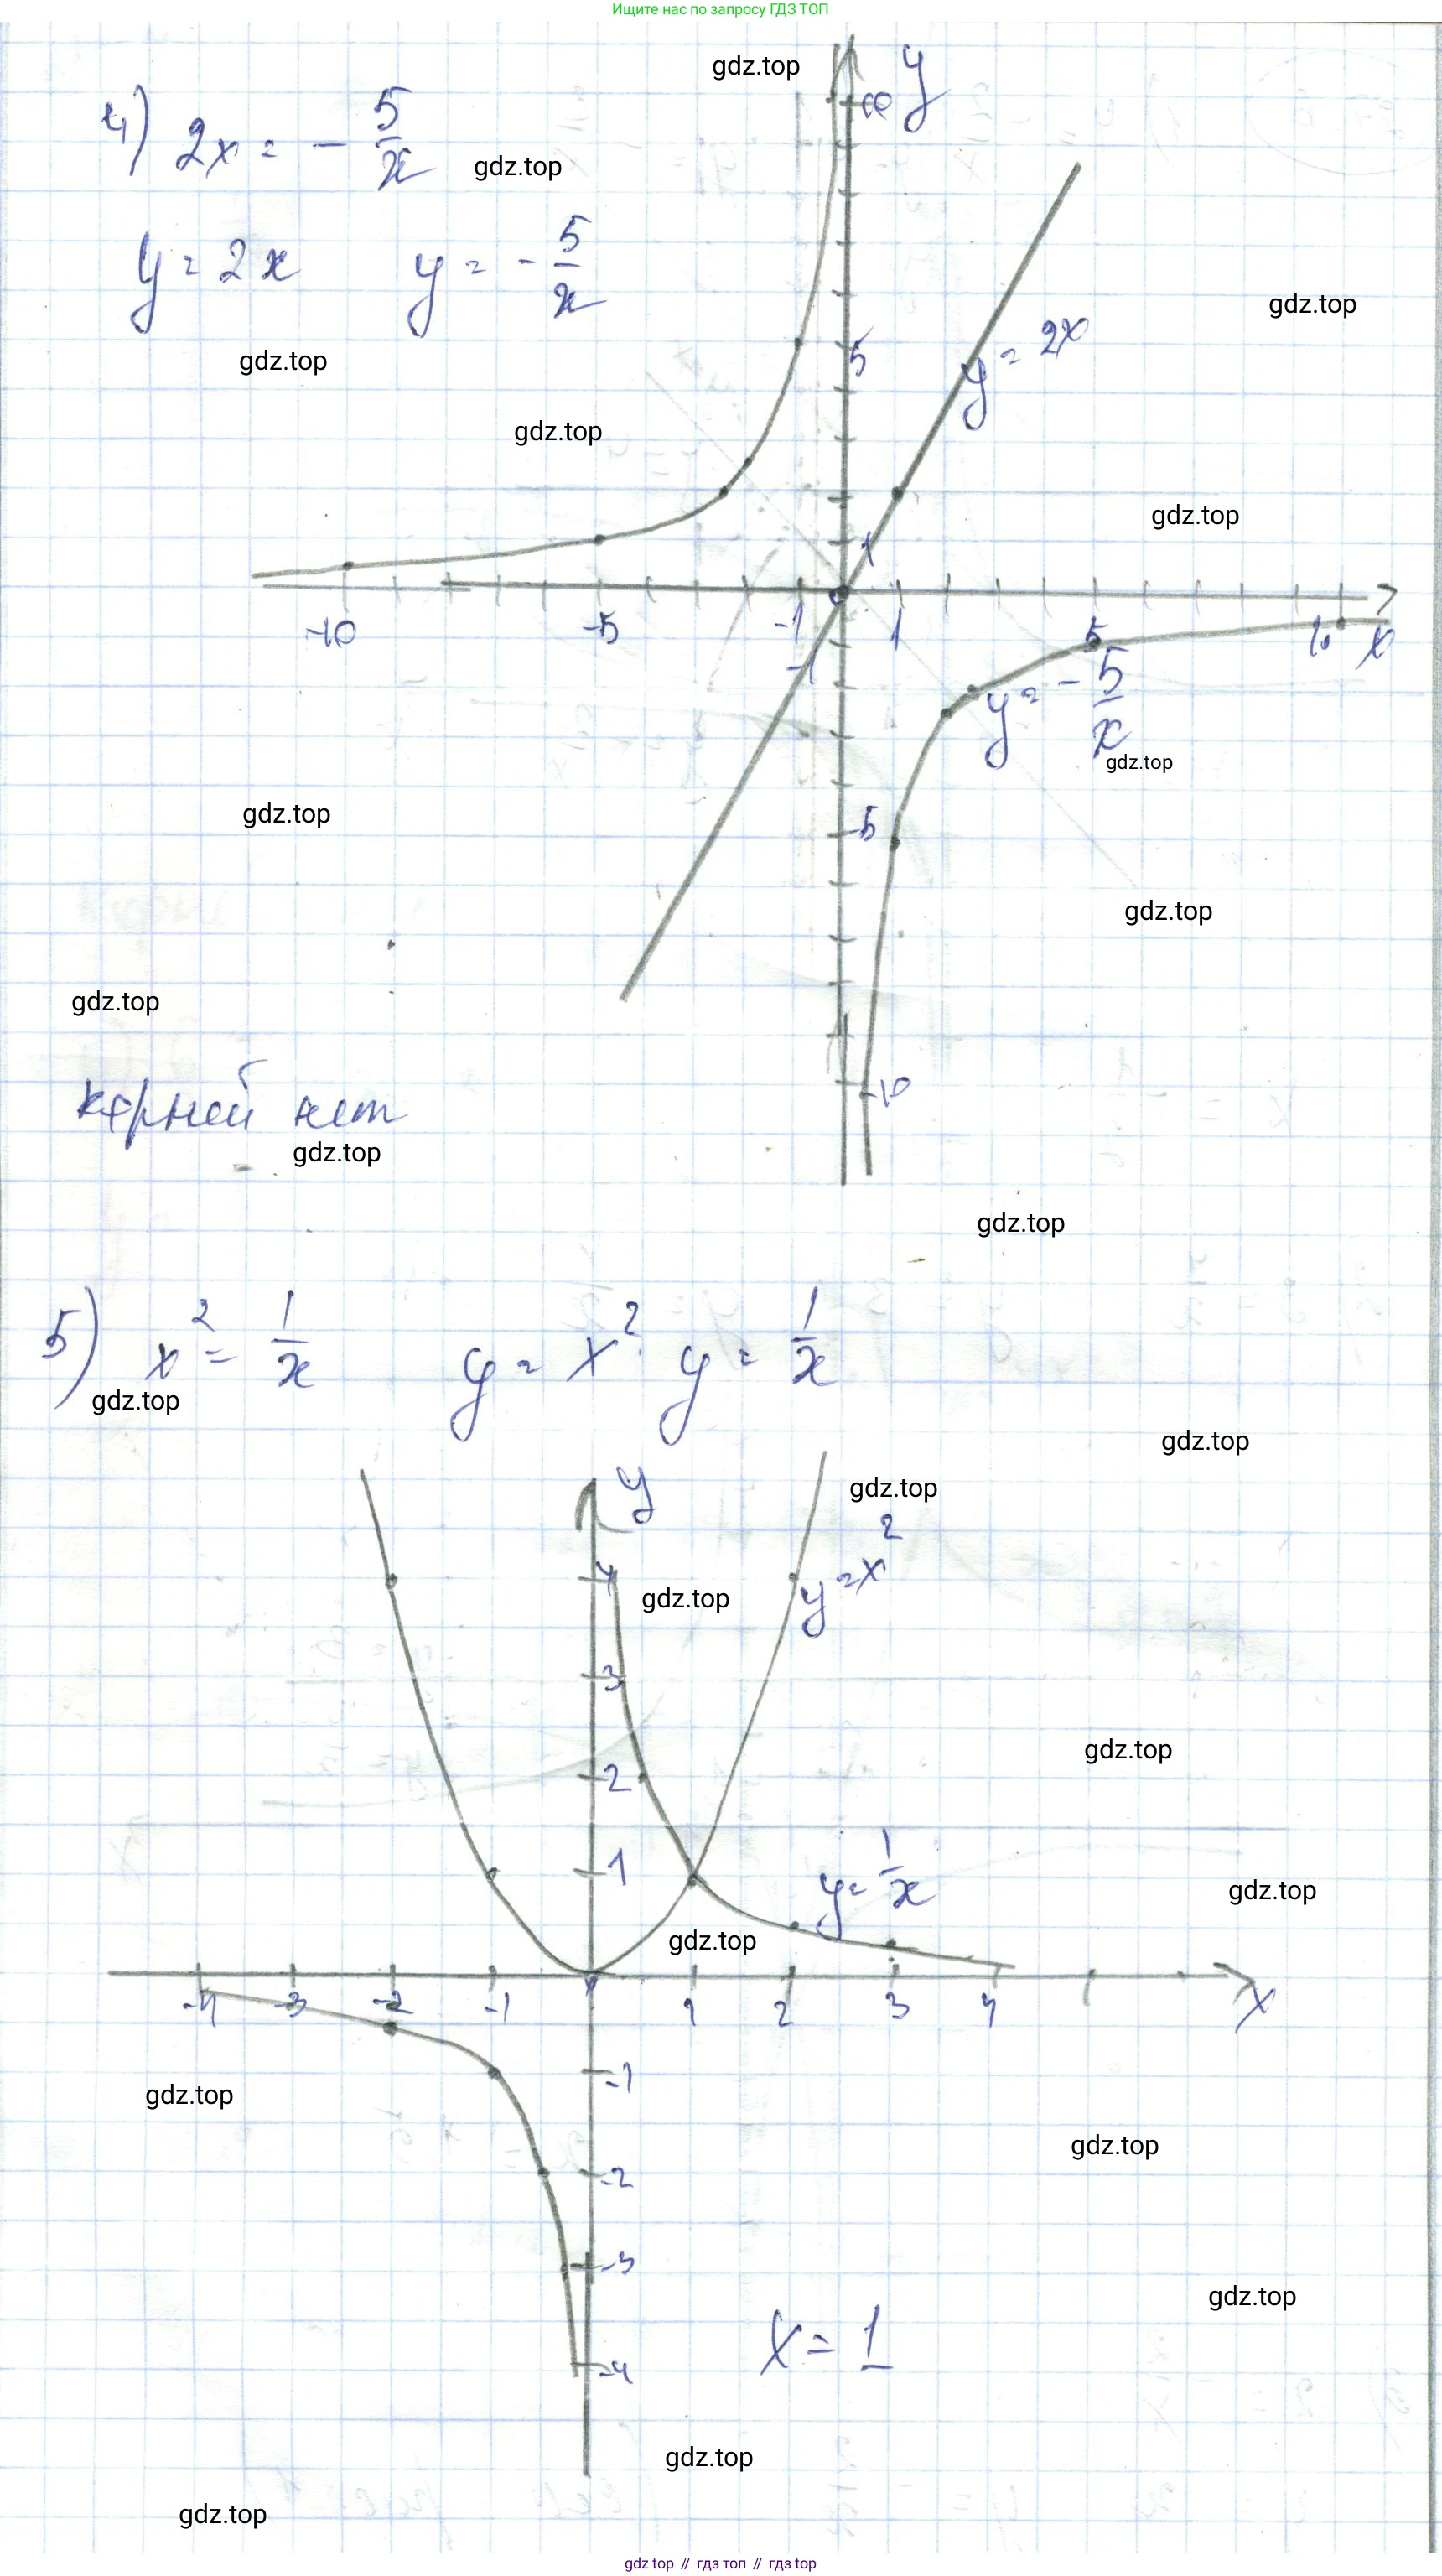 Ищите нас по запросу ГДЗ ТОП
gdz.top
4) 2x = - 5/x
gdz.top
y = 2x   y = - 5/x
gdz.top
gdz.top
gdz.top
y
10
5
1
-1
-5
-10
-10 -5 -1 0 1 5 10 x
y = 2x
y = - 5/x
gdz.top
gdz.top
gdz.top
gdz.top
gdz.top
корней нет
gdz.top
gdz.top
5) x² = 1/x   y = x²   y = 1/x
gdz.top
gdz.top
gdz.top
y
y = x²
4
gdz.top
3
gdz.top
2
1
y = 1/x
gdz.top
gdz.top
-4 -3 -2 -1 0 1 2 3 4 x
-1
gdz.top
gdz.top
-2
-3
gdz.top
x = 1
-4
gdz.top
gdz.top
gdz top // гдз топ // гдз top